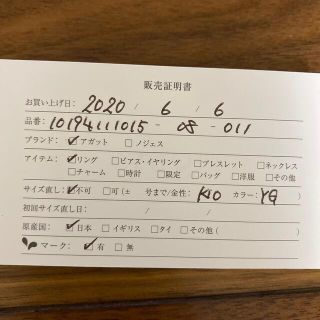 販売証明書
お買い上げ日: 2020 / 6 / 6
品番: 10194111015 - 08 - 011
ブランド: ☑アガット □ノジェス
アイテム: ☑リング □ピアス・イヤリング □ブレスレット □ネックレス
□チャーム □時計 □限定 □バッグ □洋服 □その他
サイズ直し: ☑不可 □可(± 号まで/金性: K10 カラー: YG )
初回サイズ直し日: / /
原産国: ☑日本 □イギリス □タイ □その他( )
マーク: ☑有 □無